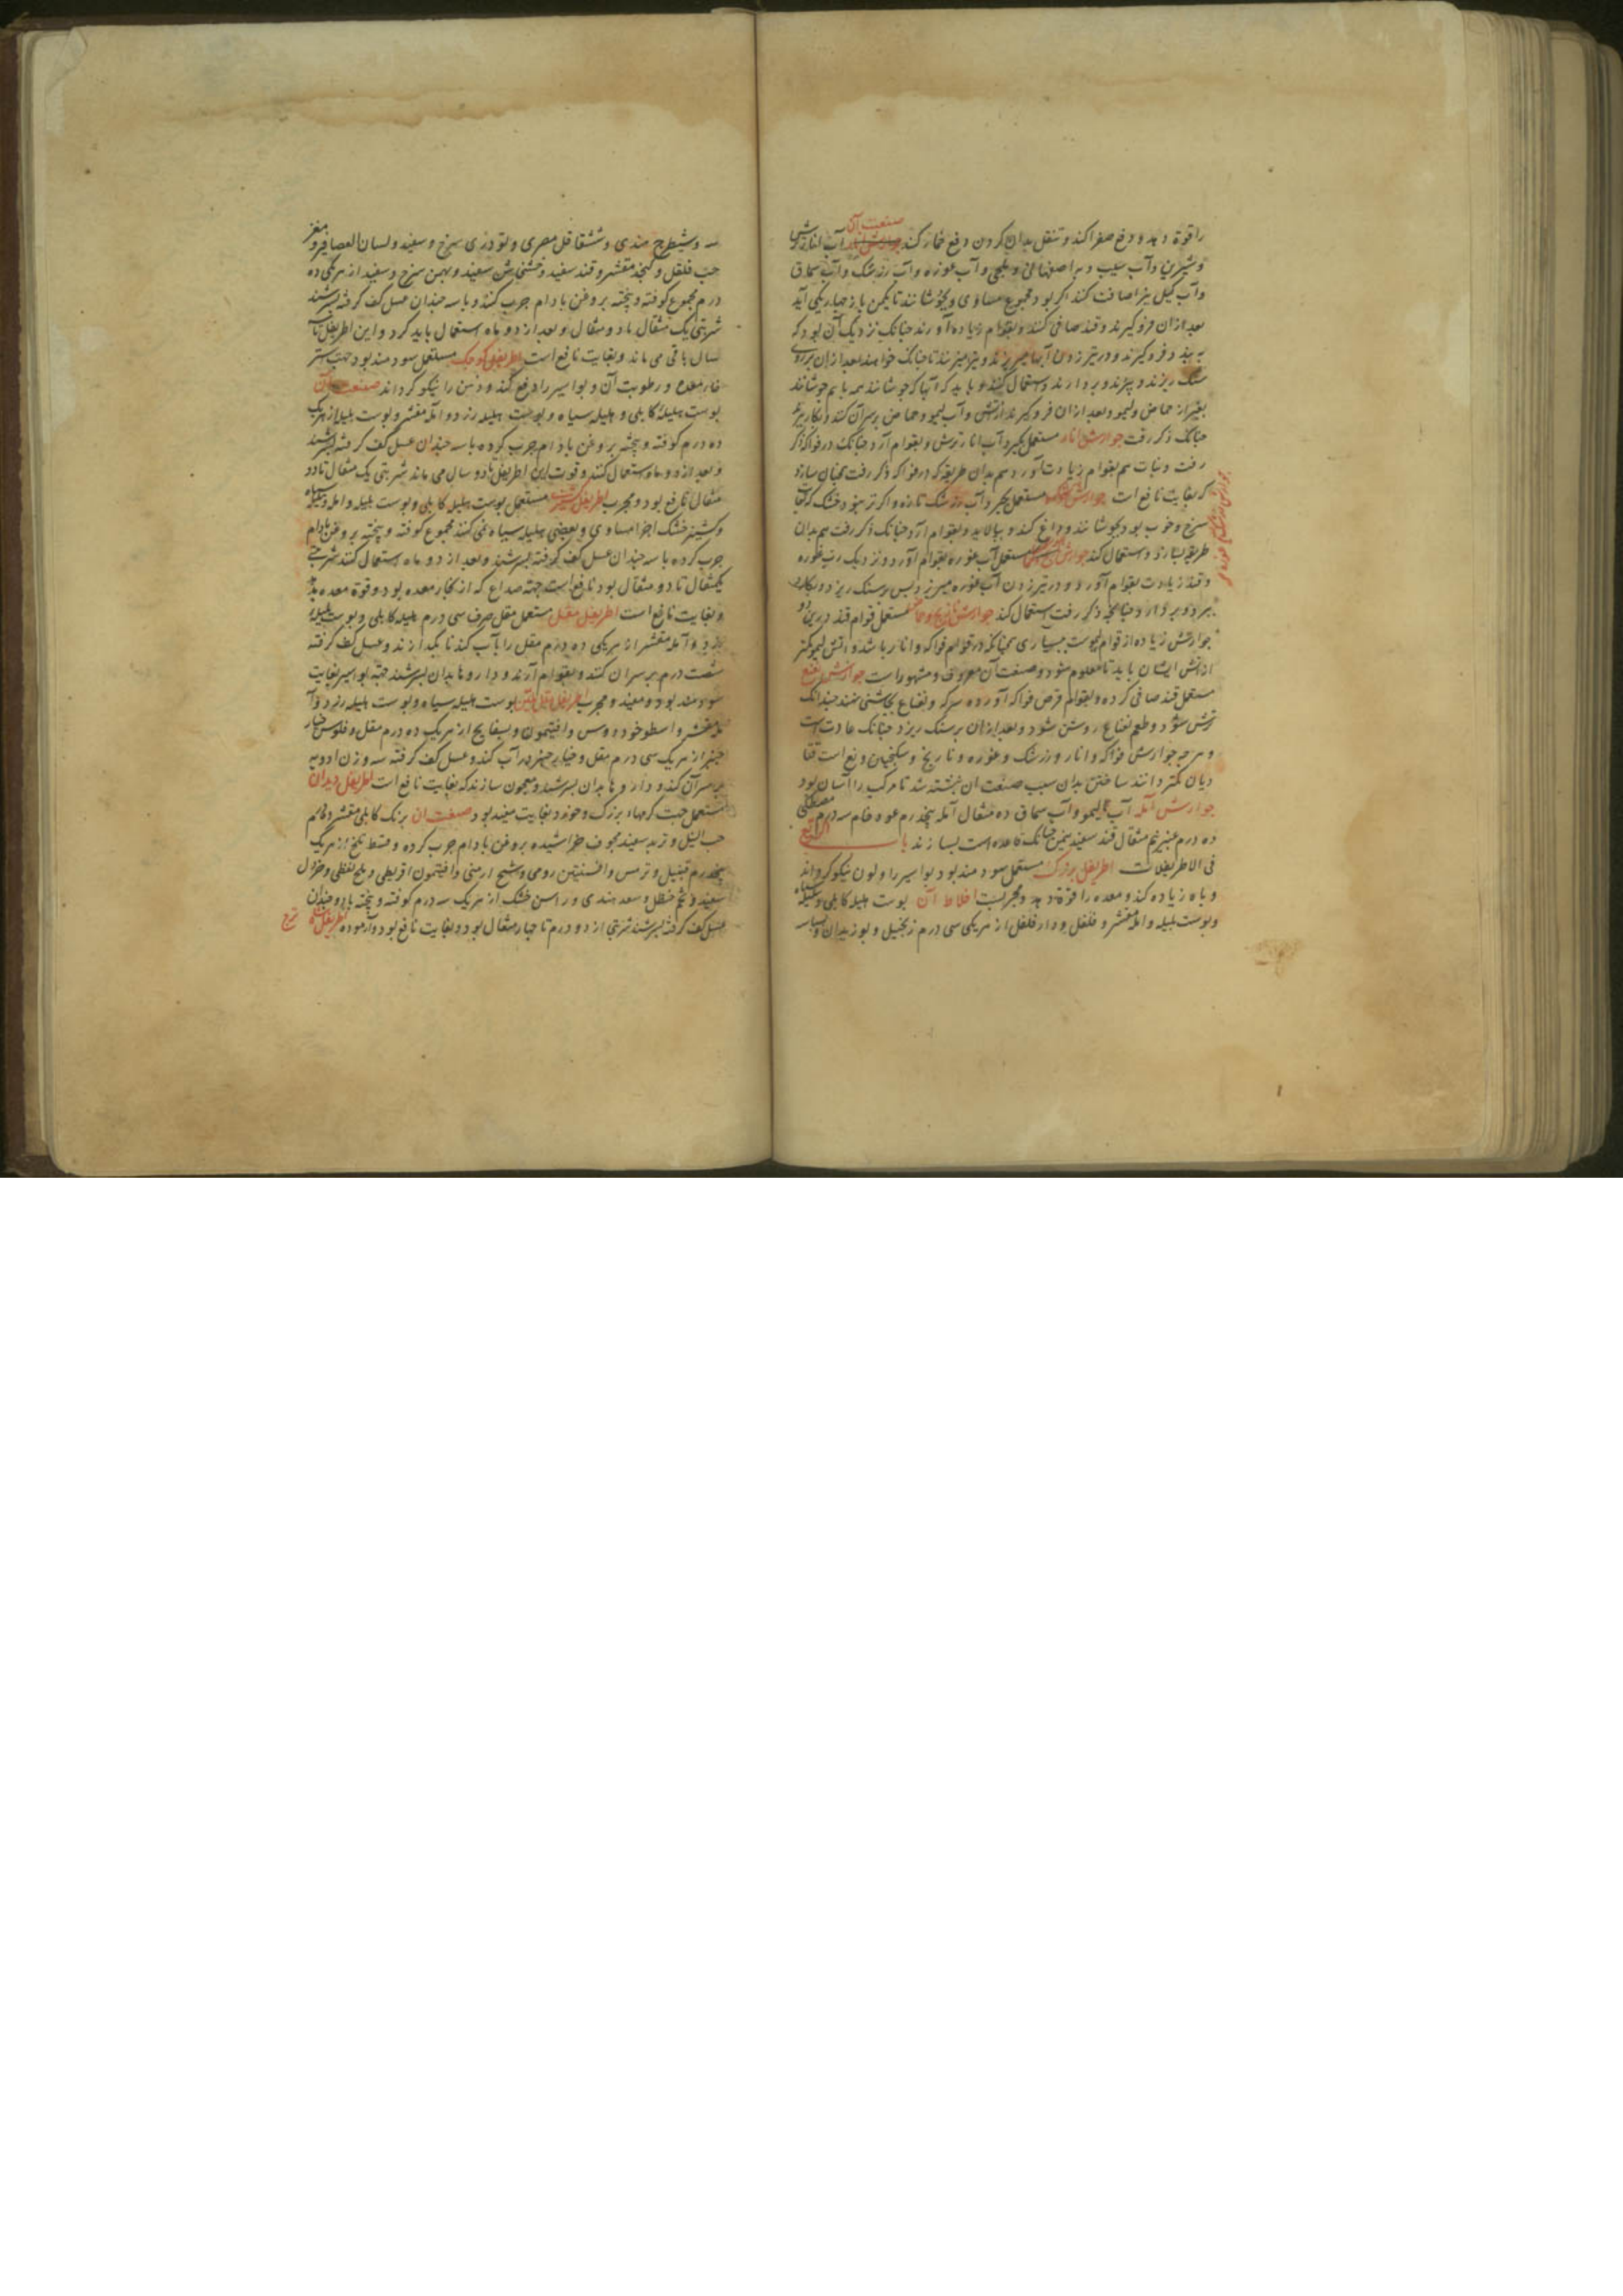 را قوة دهد و دفع صفرا کند و تنقل بدان کردن دفع خمار کند صنعت آن آب انار ترش
و شیرین و آب سیب و به اصفهانی و بلخی و آب غوره و آب زرشک و آب سماق
و آب کیل نیز اضافت کنند اکر بود مجموع مساوی و بجوشانند تا یکمن باز چهاریکی آید
بعد ازان فرو کیرند و قند صافی کنند و بقوام زیاده آورند چنانک نزدیک آن بود که
به بندد فرو کیرند و در تیز زدن آبها میریزند و میزنند تا چنانک خواهند بعد ازان بر روی
سنک ریزند و ببرند و بردارند و استعمال کنند و باید که آنها که جوشانند همه باهم جوشانند
بغیر از حماض و لیمو و بعد ازان فرو کیرند از آتش و آب لیمو و حماض بر سر آن کنند و بکار برند
چنانک ذکر رفت جوارش انار مستعمل بکیرد آب انار ترش و بقوام آرد چنانک در فواکه ذکر
رفت و نبات هم بقوام زیادت آورد هم بدان طریقه که در فواکه ذکر رفت همچنان سازد
که بغایت نافع است جوارش زرشک مستعمل بکیرد آب زرشک تازه و اکر تر نبود خشک که بغایت
سرخ و خوب بود بجوشانند و داغ کند و بپالاید و بقوام آرد چنانک ذکر رفت هم بدان
طریقه بسازد و استعمال کند جوارش غوره مستعمل آب غوره بقوام آورد و نزدیک رب غوره
و قند زیادت بقوام آورد و در تیز زدن آب غوره میریزد پس بر سنک ریزد و بکارد
ببرد و بردارد و چنانچه ذکر رفت استعمال کند جوارش نارنج و حماض مستعمل قوام قند درین دو
جوارش زیاده از قوام لیموست بسیاری همچنانکه در قوام فواکه و انار باشد و آتش لیمو کمتر
از آتش ایشان باید تا معلوم شود و صنعت آن معروف و مشهور است جوارش نعنع
مستعمل قند صافی کرده و بقوام قرص فواکه آورده سرکه و نعناع بچاشنی نهند چندانک
ترش شود و طعم نعناع روشن شود و بعد ازان بر سنک ریزد چنانک عادت است
و هر چه جوارش فواکه و انار و زرشک و غوره و نارنج و سکنجبین و نعناع است
دیان کمتر دانند ساختن بدان سبب صنعت آن نبشته شد تا مرکب را آسان بود
جوارش آمله آب لیمو و آب سماق ده مثقال آمله پنجدرم عود خام سه درم مصطکی
ده درم عنبر نیم مثقال قند سفید نیم من چنانک قاعده است بسازند باب الرابع
فی الاطریفلات اطریفل بزرک مستعمل سودمند بود بواسیر را و لون نیکو کرداند
و باه زیاده کند و معده را قوة دهد و مجربست اخلاط آن پوست هلیله کابلی و هلیله سیاه
و پوست بلیله و آمله مقشر و فلفل و دار فلفل از هریکی سی درم زنجبیل و بوزیدان و بسباسه
سه و شیطرج هندی و شقاقل مصری و تودری سرخ و سفید و لسان العصافیر و مغز
حب فلفل و کنجد مقشر و قند سفید و خشخاش سفید و بهمن سرخ و سفید از هریکی ده
درم مجموع کوفته و بیخته بروغن بادام چرب کنند و با سه چندان عسل کف کرفته بسرشند
شربتی یک مثقال تا دو مثقال و بعد از دو ماه استعمال باید کرد و این اطریفل تا سه
سال باقی می ماند و بغایت نافع است اطریفل کوچک مستعمل سودمند بود جهت ستر
خار معده و رطوبت آن و بواسیر را دفع کند و ذهن را نیکو کرداند صنعت آن
پوست هلیلهٔ کابلی و هلیله سیاه و پوست هلیله زرد و آمله مقشر و پوست بلیله از هریک
ده درم کوفته و بیخته بروغن بادام چرب کرده با سه چندان عسل کف کرفته بسرشند
و بعد از دو ماه استعمال کنند و قوت این اطریفل تا دو سال می ماند شربتی یک مثقال تا دو
مثقال نافع بود و مجرب اطریفل کشنیز مستعمل پوست هلیله کابلی و پوست بلیله و آمله و هلیله سیاه
و کشنیز خشک اجزا مساوی و بعضی هلیله سیاه نمی کنند مجموع کوفته و بیخته بروغن بادام
چرب کرده با سه چندان عسل کف کرفته بسرشند و بعد از دو ماه استعمال کنند شربتی
یکمثقال تا دو مثقال بود نافع است جهته صداع که از بخار معده بود و قوة معده بدهد
و بغایت نافع است اطریفل مقل مستعمل مقل صرف سی درم هلیله کابلی و پوست بلیله
زرد و آمله مقشر از هریکی ده درم مقل را بآب کندنا بکدازند و عسل کف کرفته
شصت درم بر سر آن کنند و بقوام آرند و داروها بدان بسرشند جهة بواسیر بغایت
سودمند بود و مفید و مجرب اطریفل مقل ملین پوست هلیله سیاه و پوست هلیله زرد و آ
مله مقشر و اسطوخودوس و افتیمون و بسفایج از هریک ده درم مقل و فلوس خیار
چنبر از هریک سی درم مقل و خیار چنبر در آب کنند و عسل کف کرفته سه وزن ادویه
بر سر آن کنند و داروها بدان بسرشند و معجون سازند که بغایت نافع است اطریفل دیدان
مستعمل جهت کرمهاء بزرک و خورد بغایت مفید بود صنعت آن برنک کابلی مقشر
حب النیل و تربد سفید مجوف خراشیده بروغن بادام چرب کرده و قسط تلخ از هریک
پنجدرم قنبیل و ترمس و افسنتین رومی و شیح ارمنی و افتیمون اقریطی و ملح نفطی و خردل
سفید و شحم حنظل و سعد هندی و راسن خشک از هریک سه درم کوفته و بیخته با دو چندان
عسل کف کرفته بسرشند شربتی از دو درم تا چهار مثقال بود و بغایت نافع بود و آزموده اطریفل